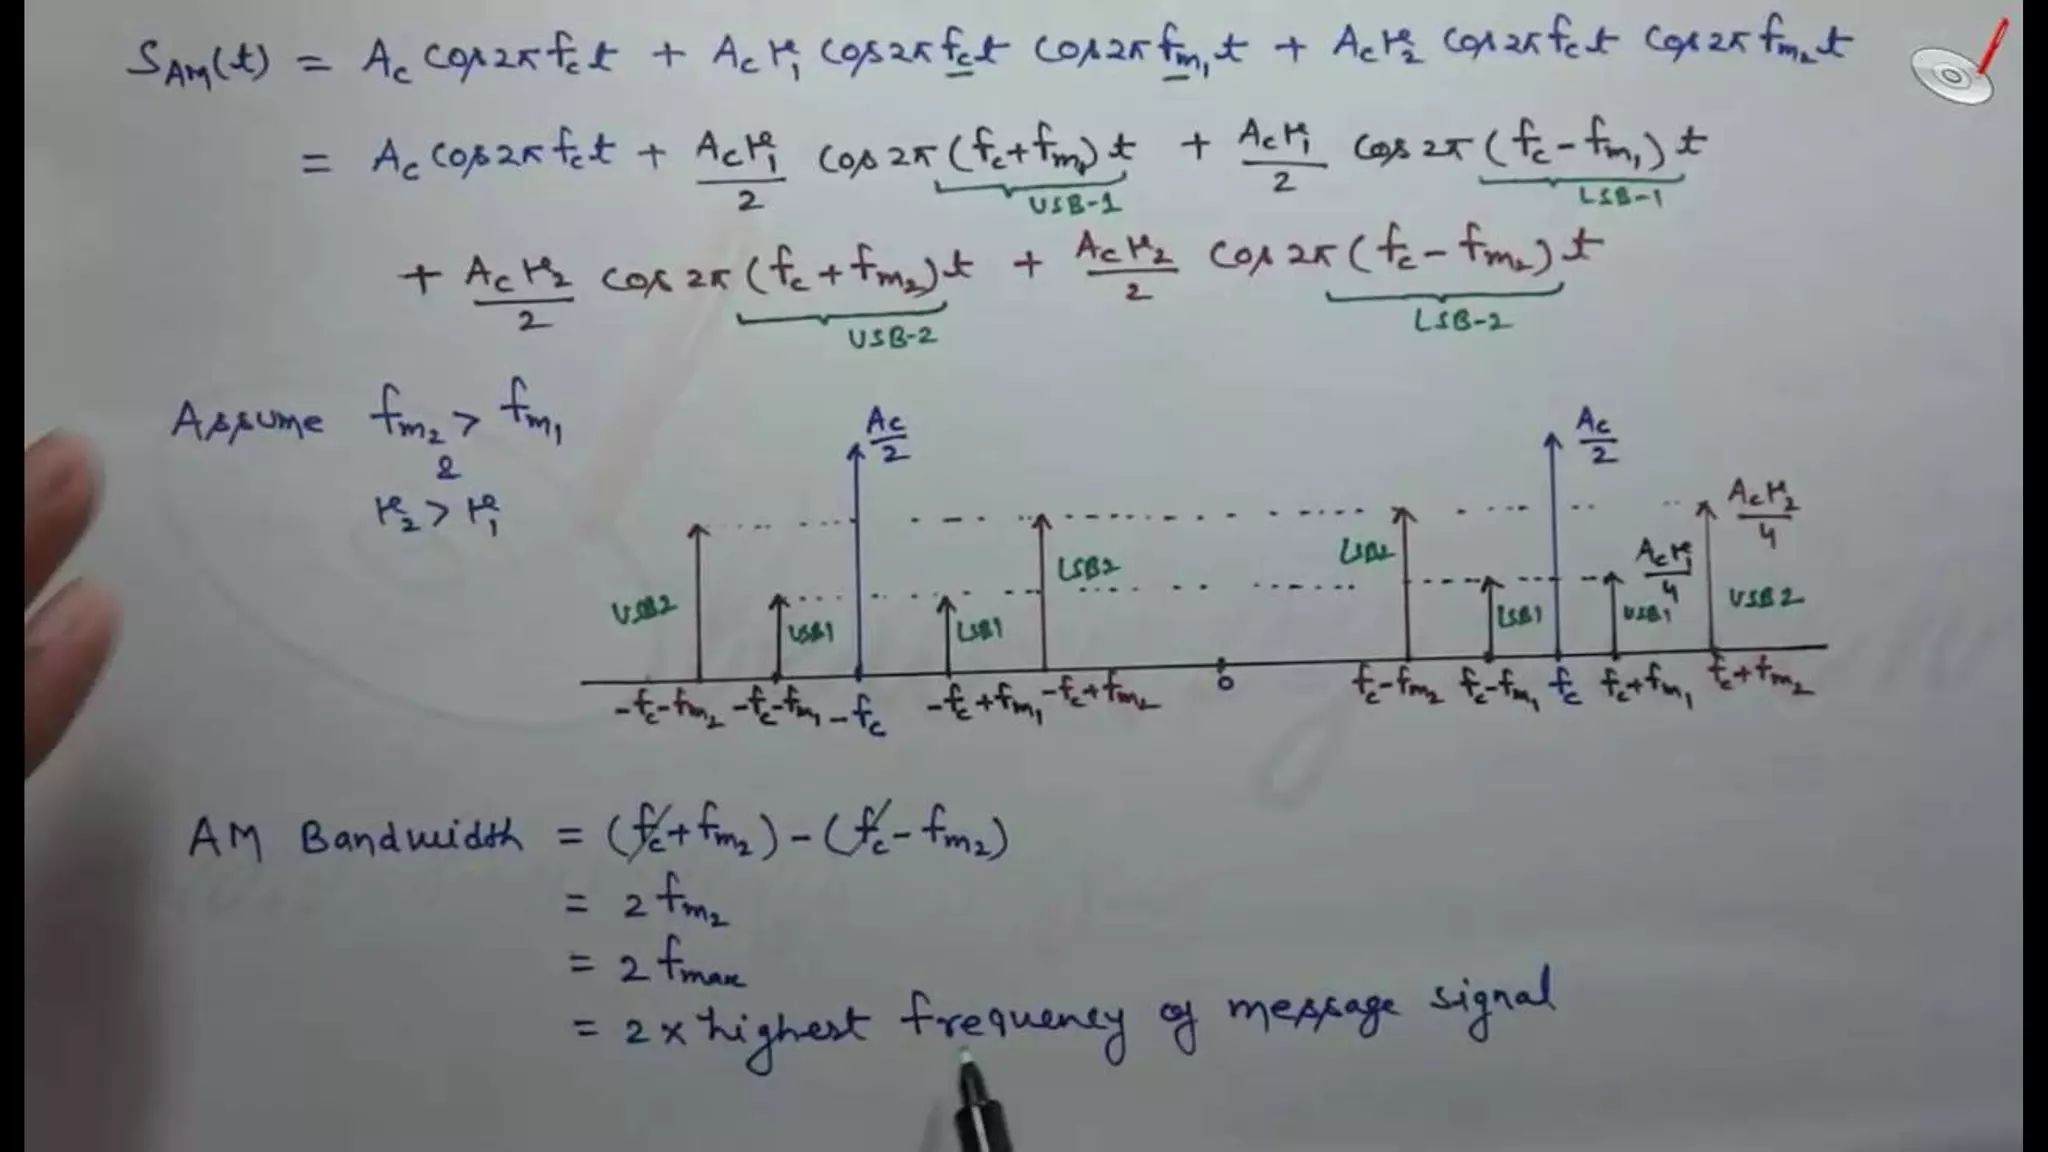 S_AM(t) = A_c cos2πf_ct + A_cμ_1 cos2πf_ct cos2πf_m₁t + A_cμ_2 cos2πf_ct cos2πf_m₂t
= A_c cos2πf_ct + A_cμ_1/2 cos2π(f_c+f_m₁)t + A_cμ_1/2 cos2π(f_c-f_m₁)t
USB-1 LSB-1
+ A_cμ_2/2 cos2π(f_c+f_m₂)t + A_cμ_2/2 cos2π(f_c-f_m₂)t
USB-2 LSB-2
Assume f_m₂ > f_m₁
&
μ_2 > μ_1
A_c/2 A_c/2
A_cμ_2/4
A_cμ_1/4
USB2 USB1 LSB1 LSB2 LSB2 LSB1 USB1 USB2
-f_c-f_m₂ -f_c-f_m₁ -f_c -f_c+f_m₁ -f_c+f_m₂ 0 f_c-f_m₂ f_c-f_m₁ f_c f_c+f_m₁ f_c+f_m₂
AM Bandwidth = (f_c+f_m₂)-(f_c-f_m₂)
= 2f_m₂
= 2f_max
= 2 x highest frequency of message signal